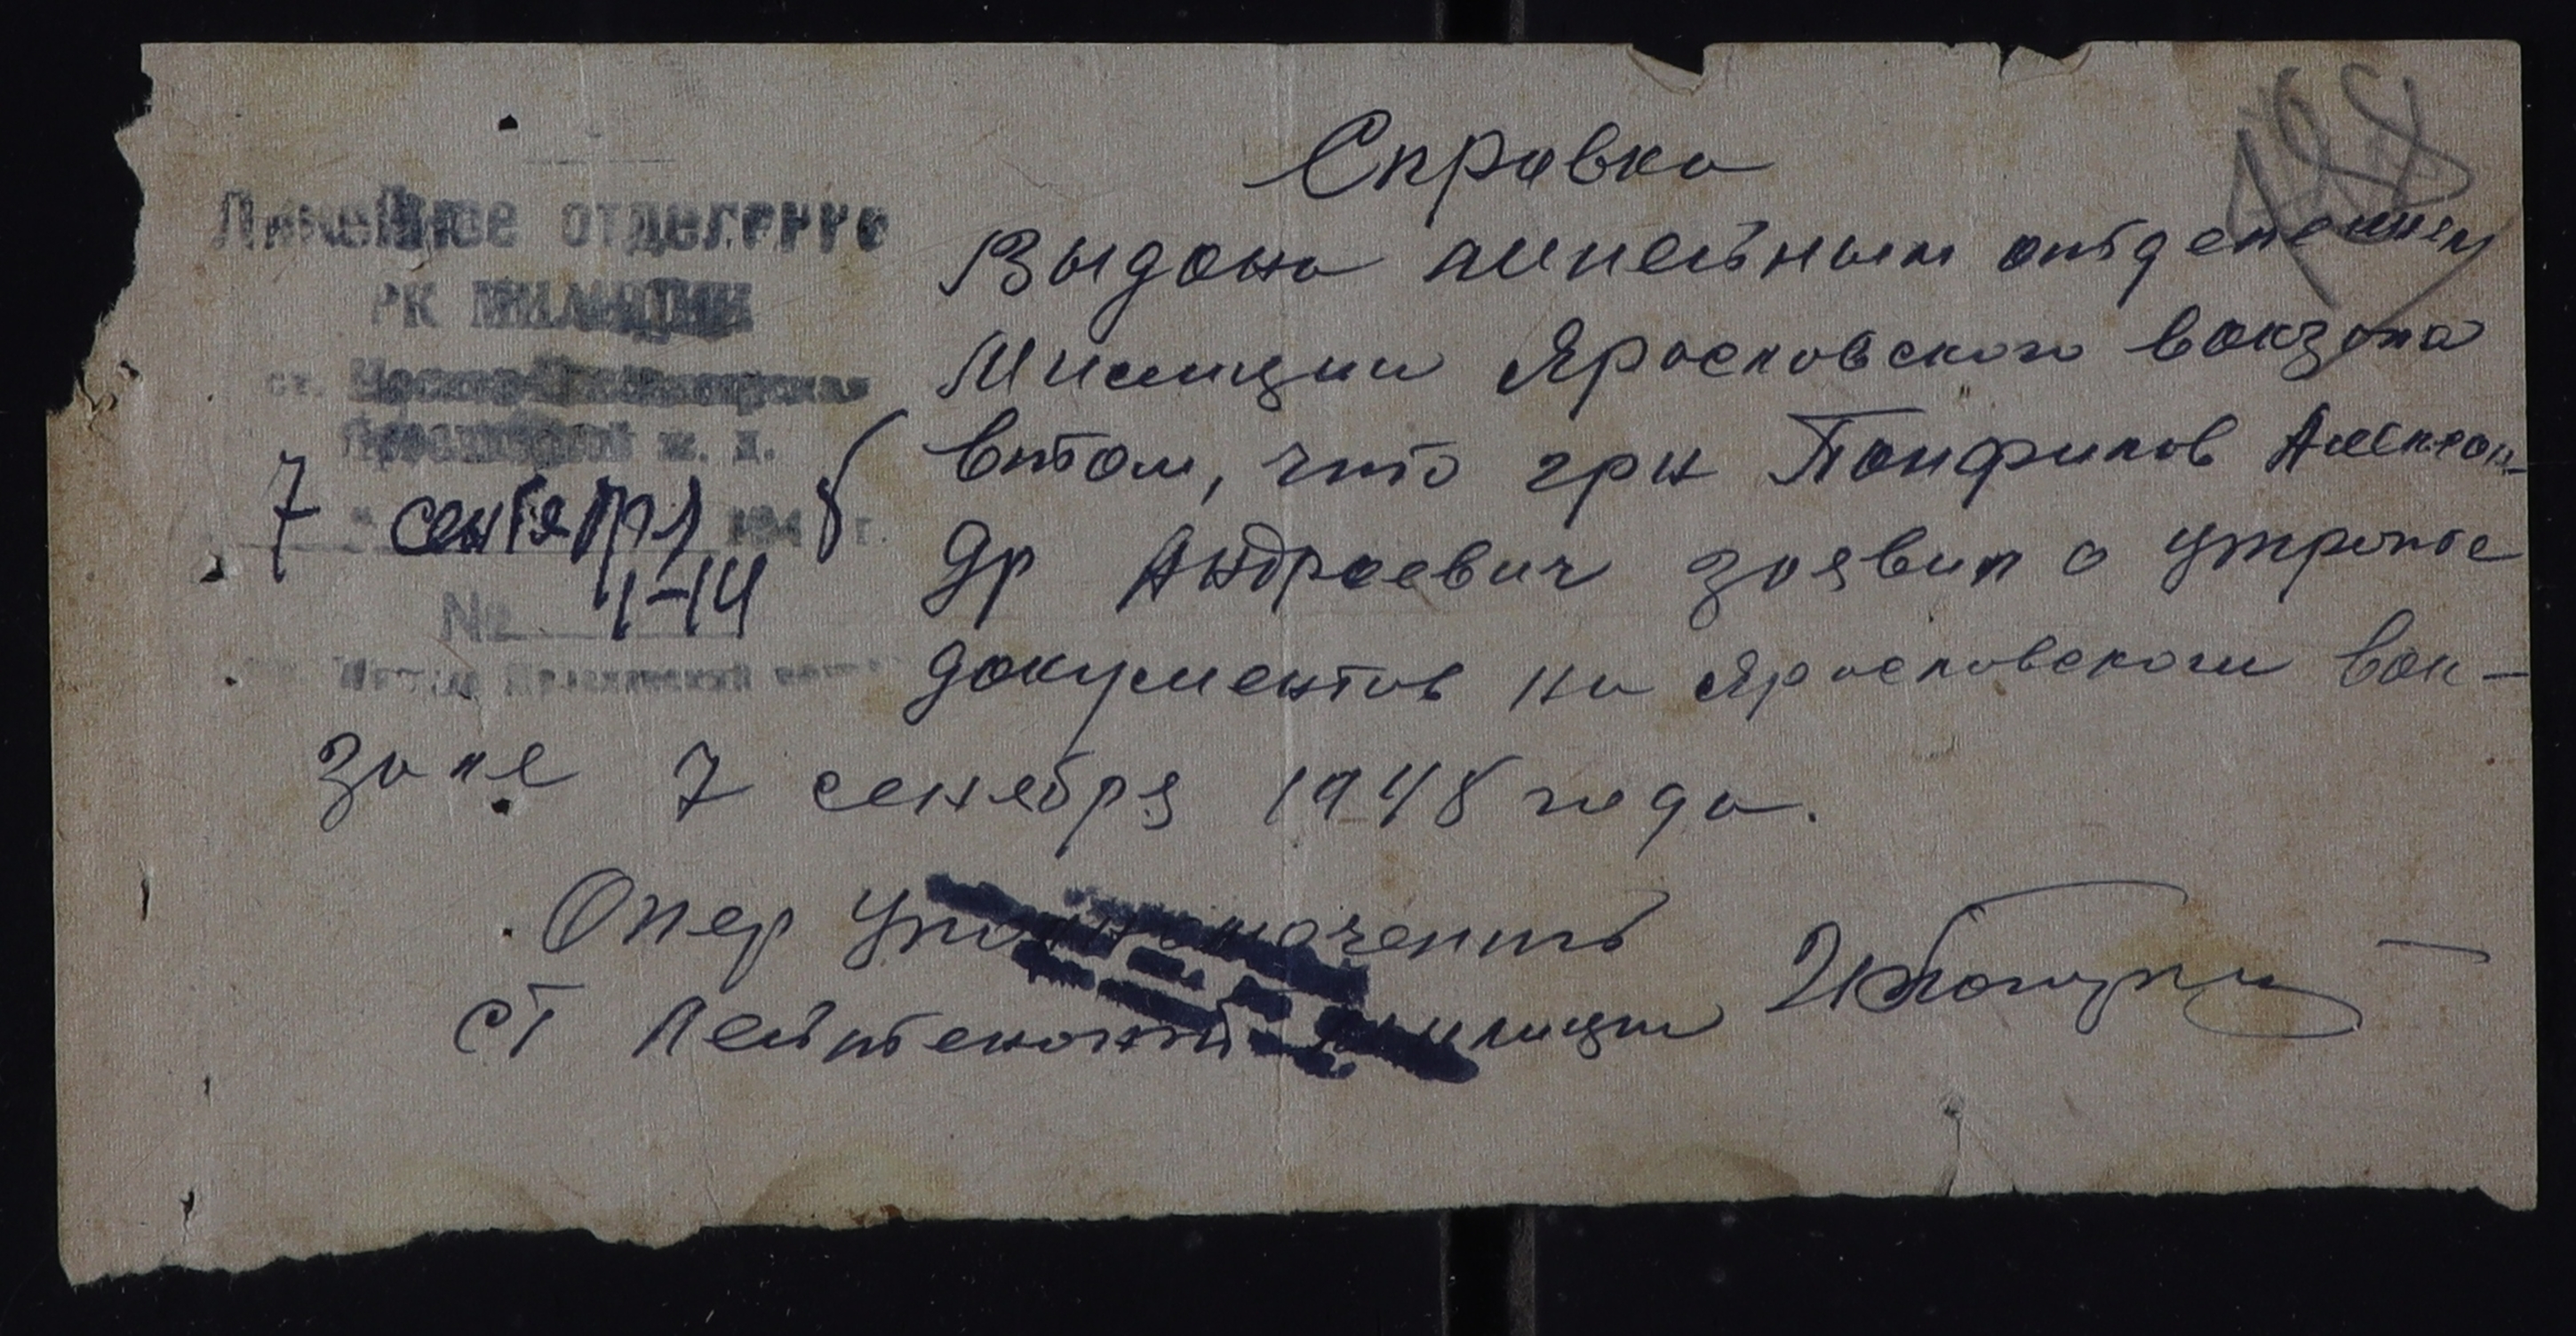 198
Справка
Линейное отделение
РК МИЛИЦИИ
ст.
ж. д.
7 сентября 1948 г.
№ 1-14
Выдана линейным отделением
Милиции Ярославского вокзала
втом, что грн Панфилов Алексан-
др Андреевич заявил о утрате
документов на Ярославском вок-
зале 7 сенября 1948 года.
Опер Уполномоченить
ст Лейтенант милиции